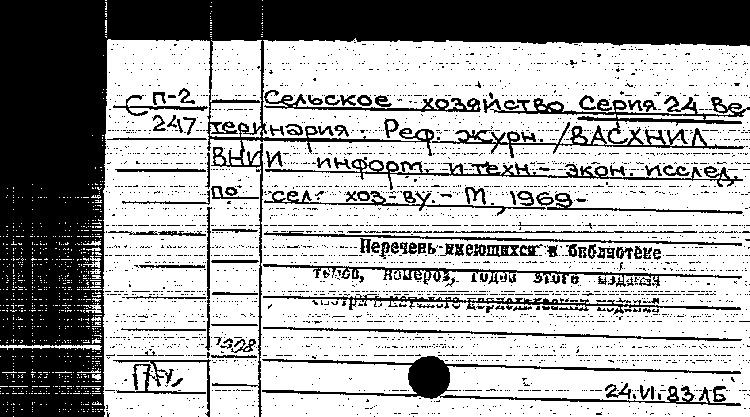 С П-2
247
Сельское хозяйство Серия 24. Ве
теринария. Реф. журн. /ВАСХНИЛ
ВНИИ информ. и техн.- экон. исслед.
по сел. хоз-ву. - М., 1969-
Перечень имеющихся в библиотеке
томов, номеров, годов этого издания
смотри в каталоге периодических изданий
24.VI.83 ЛБ